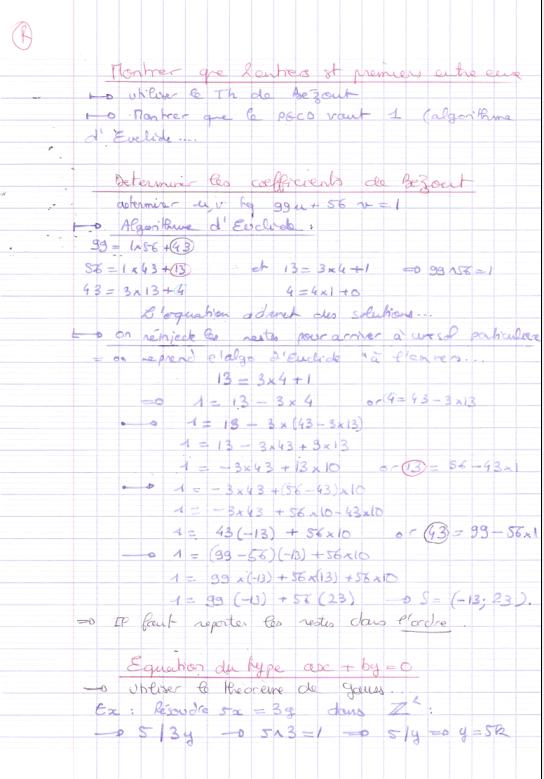 R
Montrer que 2 entiers st premiers entre eux
↦ utiliser le Th de Bézout
↦ Montrer que le PGCD vaut 1 (algorithme
d'Euclide....
Déterminer les coefficients de Bézout
déterminer u,v tq 99u + 56 v = 1
↦ Algorithme d'Euclide :
99 = 1x56 + 43
56 = 1 x 43 + 13 et 13 = 3x4+1 ⇒ 99∧56=1
43 = 3x13+4 4 = 4x1+0
L'équation admet des solutions...
↦ on réinjecte les restes pour arriver à une sol particulière
= on reprend l'algo d'Euclide "à l'envers...
13 = 3x4+1
⇒ 1 = 13 - 3x4 or 4 = 43 - 3x13
→ 1 = 13 - 3x(43-3x13)
1 = 13 - 3x43 + 9x13
1 = -3x43 + 13x10 or 13 = 56 - 43x1
→ 1 = -3x43 + (56-43)x10
1 = -3x43 + 56x10 - 43x10
1 = 43(-13) + 56x10 or 43 = 99 - 56x1
→ 1 = (99-56)(-13) + 56x10
1 = 99x(-13) + 56x(13) + 56x10
1 = 99(-13) + 56(23) → S = (-13; 23).
⇒ Il faut reporter les restes dans l'ordre.
Equation du type ax + by = 0
→ utiliser le théorème de gauss...
Ex : Résoudre 5x = 3y dans ℤ² :
→ 5/3y → 5∧3=1 ⇒ 5/y ⇒ y=5k